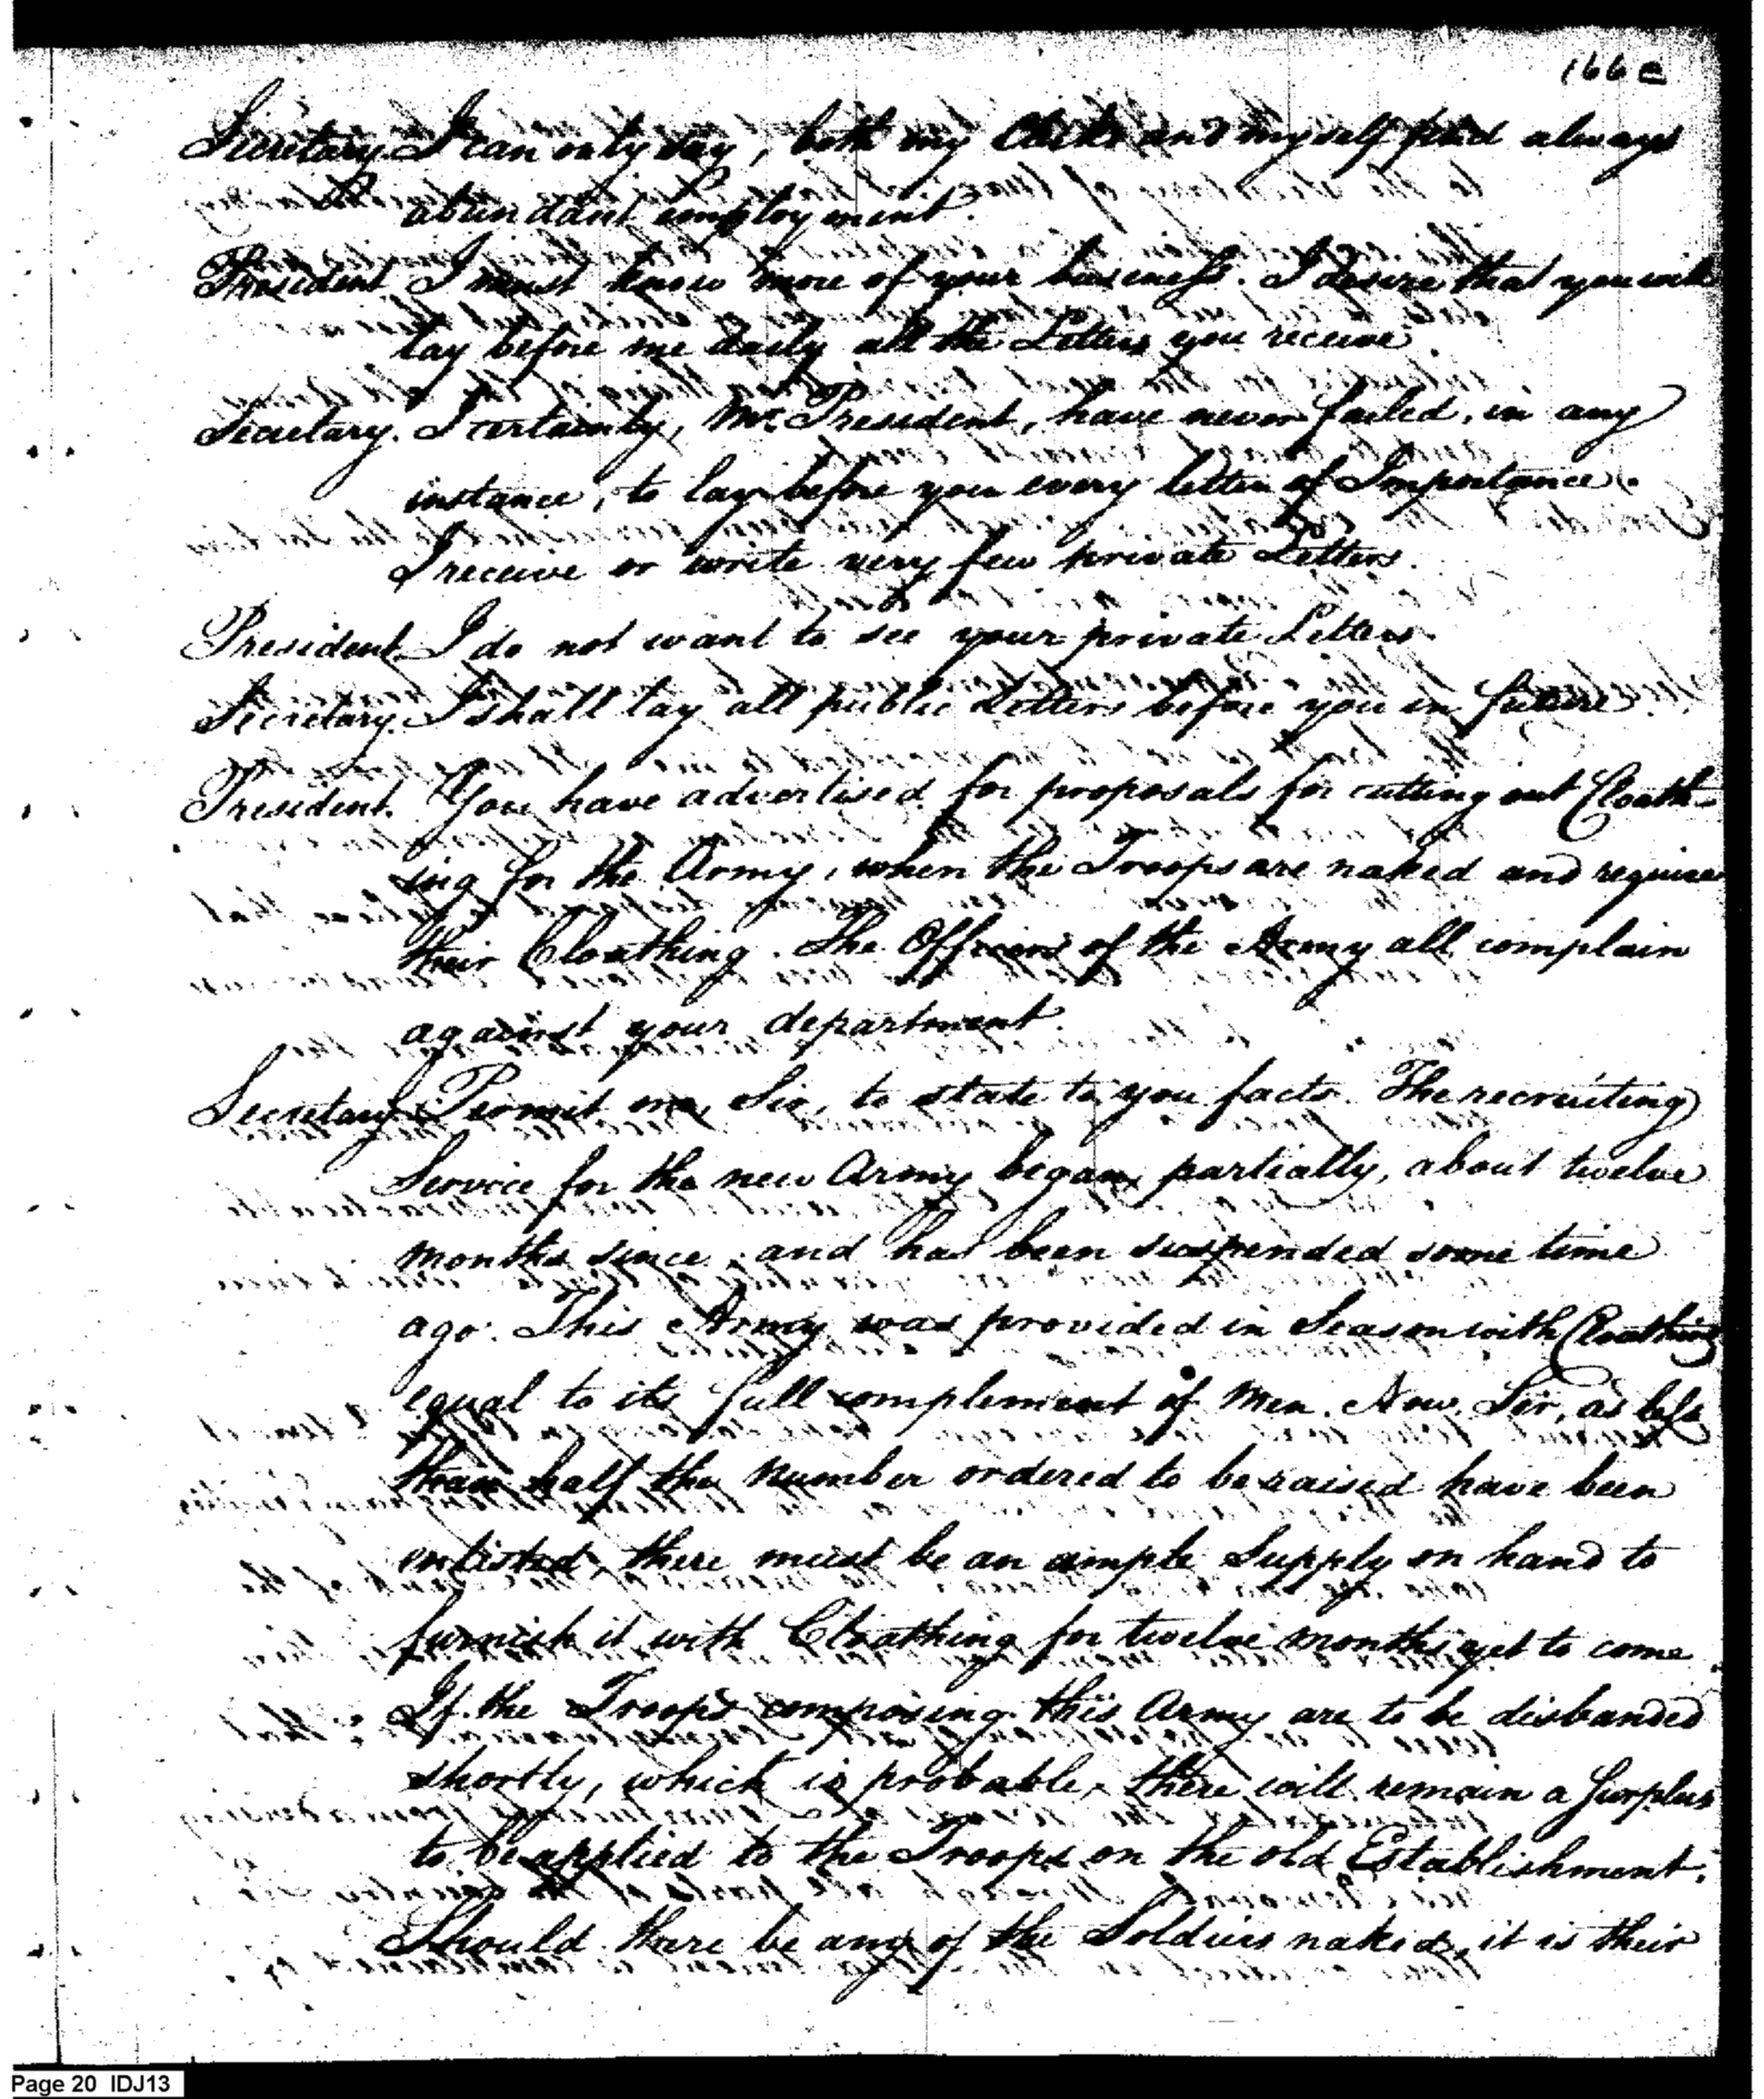 166 e
Secretary I can only say, both my Clerks and myself find always
abundant employment.
President I must know more of your business. I desire that you will
lay before me daily all the Letters you receive.
Secretary. I certainly, Mr. President, have never failed, in any
instance, to lay before you every letter of Importance.
I receive or write very few private Letters.
President I do not want to see your private Letters.
Secretary. I shall lay all public Letters before you in future.
President. You have advertised for proposals for cutting out Cloath-
ing for the Army, when the Troops are naked and require
their Cloathing. The Officers of the Army all complain
against your department.
Secretary Permit me, Sir, to state to you facts. The recruiting
Service for the new Army began, partially, about twelve
months since, and has been suspended some time
ago. This Army was provided in Season with Cloathing
equal to its full complement of Men. Now, Sir, as less
than half the number ordered to be raised have been
inlisted, there must be an ample Supply on hand to
furnish it with Cloathing for twelve months yet to come.
If the Troops composing this Army are to be disbanded
shortly, which is probable, there will remain a Surplus
to be applied to the Troops on the old Establishment.
Should there be any of the Soldiers naked, it is their
Page 20 IDJ13